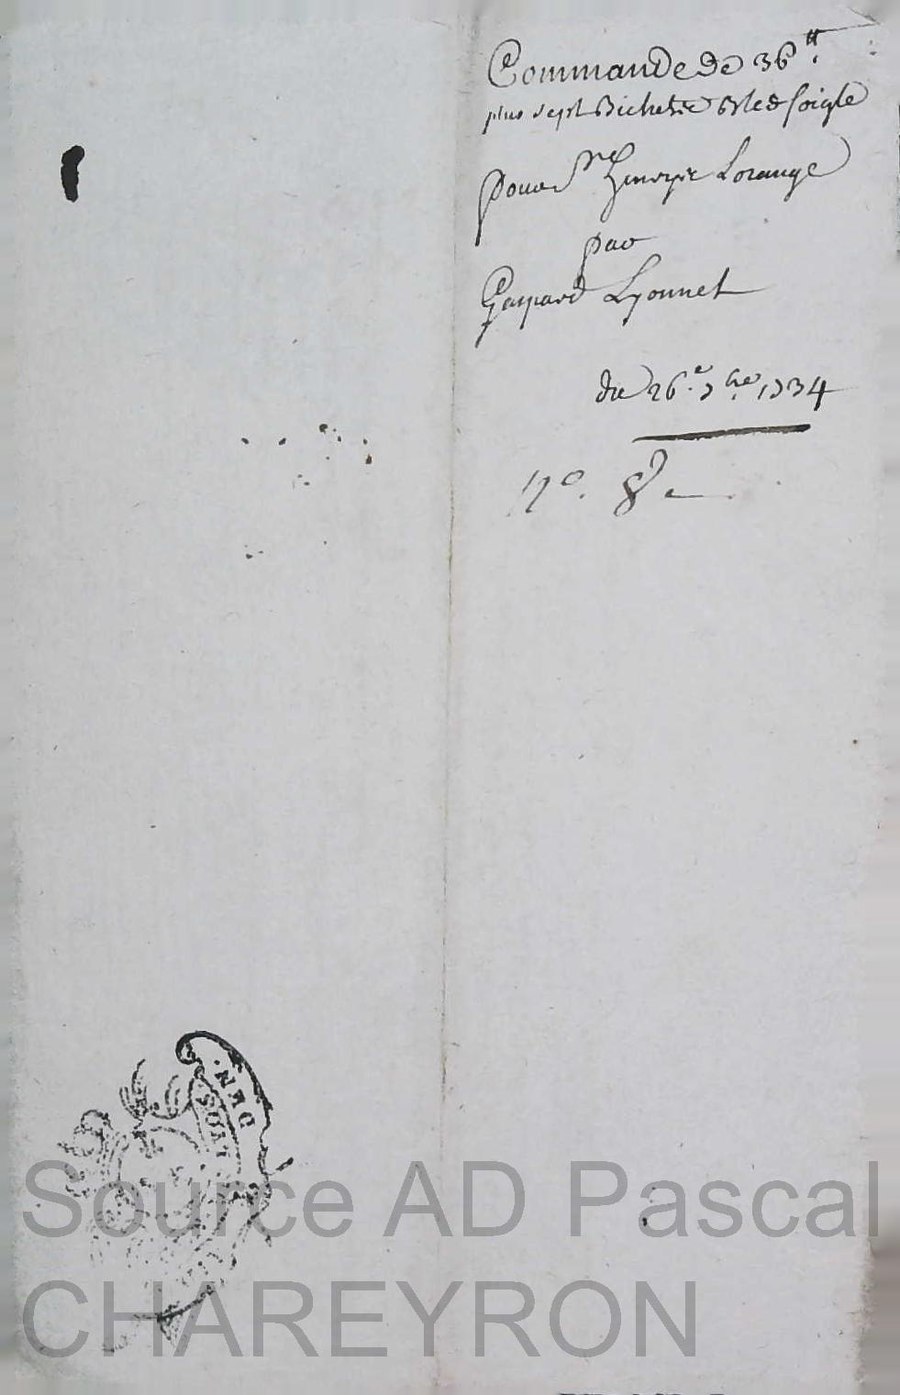 Commande de 36 ₶.
plus sept Bichets Bled soigle
pour Sr Lorange
par
Gaspard Lyonnet
du 26e 7bre 1734
No. 8e
DEN.
SOLS
Source AD Pascal
CHAREYRON